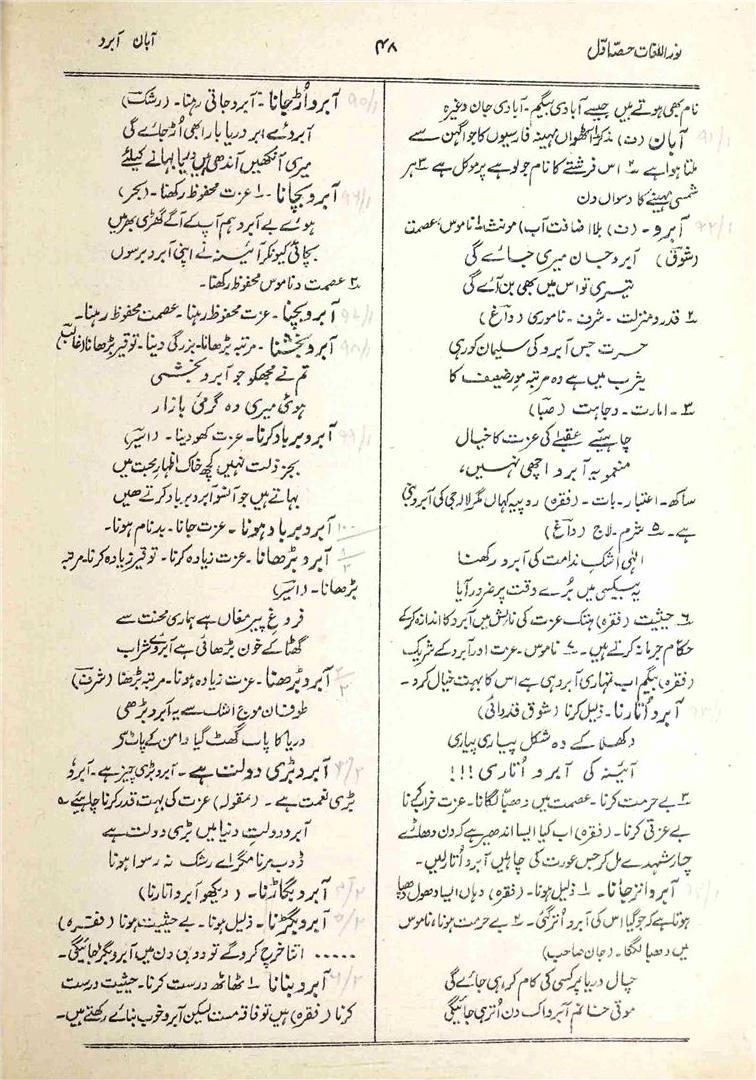 نور اللغات حصّہ اوّل
۴۸
آبان آبرو
نام بھی ہوتے ہیں جیسے آبادی بیگم۔ آبادی جان وغیرہ
آبان (ن) مذکر آٹھواں مہینہ فارسیوں کا جو اگہن سے
ملتا ہوا ہے ۲ اس فرشتے کا نام جو لوہے پر موکل ہے ۳ ہر
شمسی مہینے کا دسواں دن
آبرو۔ (ن) بلا اضافت آب) مونث ۱ ناموس عصمت
(شوق) آبرو جان میری جائے گی
تیری تو اس میں بھی بن آئے گی
۲ قدر و منزلت۔ شرف۔ ناموری (داغ)
حسرت جس آبرو کی سلیمان کو رہی
یثرب میں ہے وہ مرتبہ مور ضعیف کا
۳۔ امارت۔ وجاہت (صبا)
چاہیئے عقبےٰ کی عزت کا خیال
منعمو یہ آبرو اچھی نہیں،
ساکھ۔ اعتبار۔ بات۔ (فقرہ) روپیہ کہاں مگر لالہ جی کی آبرو بنی
ہے۔ ۵ شرم۔ لاج (داغ)
الٰہی اشک ندامت کی آبرو رکھنا
یہ بیکسی میں بُرے وقت پر ضرور آیا
۶ حیثیت (فقرہ) ہتک عزت کی نالش میں آبرو کا اندازہ کرکے
حکام جرمانہ کرتے ہیں۔ ۷ ناموس۔ عزت اور آبرو کے شریک
(فقرہ) بیگم اب تمہاری آبرو ہی ہے اس کا بہت خیال کرو۔
آبرو اُتارنا۔ ذلیل کرنا (شوق قدوائی)
دکھلا کے وہ شکل پیاری پیاری
آئینہ کی آبرو اُتاری !!!
۲ بے حرمت کرنا۔ عصمت میں دھبا لگانا۔ عزت خراب کرنا
بے عزتی کرنا۔ (فقرہ) اب کیا ایسا اندھیر ہے کہ دن دھاڑے
چار شہدے مل کر جس عورت کی چاہیں آبرو اُتار لیں۔
آبرو اتر جانا۔ ۱ ذلیل ہونا۔ (فقرہ) وہاں ایسا دھول دھپا
ہوتا ہے کہ جو گیا اس کی آبرو اُتر گئی۔ ۲ بے حرمت ہونا، ناموس
میں دھبا لگنا۔ (جان صاحب)
چال دریا پر کسی کی کام کر ہی جائے گی
موتی خانم آبرو اک دن اُتر ہی جائیگی
آبرو اُڑ جانا۔ آبرو جاتی رہنا۔ (رشک)
آبروئے ابر دریا بار ابھی اُڑ جائے گی
میری آنکھیں آندھی ہیں دریا بہانے کیلئے
آبرو بچانا۔ ۱ عزت محفوظ رکھنا۔ (بحر)
ہوئے بے آبرو ہم آپ کے آگے گھڑی بھر میں
بچائی کیونکر آئینہ نے اپنی آبرو برسوں
۲ عصمت و ناموس محفوظ رکھنا۔
آبرو بچنا۔ عزت محفوظ رہنا۔ عصمت محفوظ رہنا۔
آبرو بخشنا۔ مرتبہ بڑھانا۔ بزرگی دینا۔ توقیر بڑھانا (غالب)
تم نے مجھکو جو آبرو بخشی
ہوئی میری وہ گرمیٔ بازار
آبرو برباد کرنا۔ عزت کھو دینا۔ (اسیر)
بجز ذلت نہیں کچھ خاک اظہار محبت میں
بہاتے ہیں جو آنسو آبرو برباد کرتے ہیں
آبرو برباد ہونا۔ عزت جانا۔ بدنام ہونا۔
آبرو بڑھانا۔ عزت زیادہ کرنا۔ توقیر زیادہ کرنا۔ مرتبہ
بڑھانا۔ (اسیر)
فروغ پیر مغاں ہے ہماری محنت سے
گھٹا کے خون بڑھائی ہے آبروئے شراب
آبرو بڑھنا۔ عزت زیادہ ہونا۔ مرتبہ بڑھنا (شرف)
طوفان موج اشک سے یہ آبرو بڑھی
دریا کا پاٹ گھٹ گیا دامن کے پاٹ سے
آبرو بڑی دولت ہے۔ آبرو بڑی چیز ہے۔ آبرو
بڑی نعمت ہے۔ (مقولہ) عزت کی بہت قدر کرنا چاہیئے ۔
آبرو دولتِ دنیا میں بڑی دولت ہے
ڈوب مرنا مگر اے رشک نہ رسوا ہونا
آبرو بگاڑنا۔ (دیکھو آبرو اتارنا)
آبرو بگڑنا۔ ذلیل ہونا۔ بے حیثیت ہونا (فقرہ)
..... اتنا خرچ کرو گے تو دو ہی دن میں آبرو بگڑ جائیگی۔
آبرو بنانا ۱ ٹھاٹھ درست کرنا۔ حیثیت درست
کرنا (فقرہ) ہیں تو فاقہ مست لیکن آبرو خوب بنائے رکھتے ہیں۔